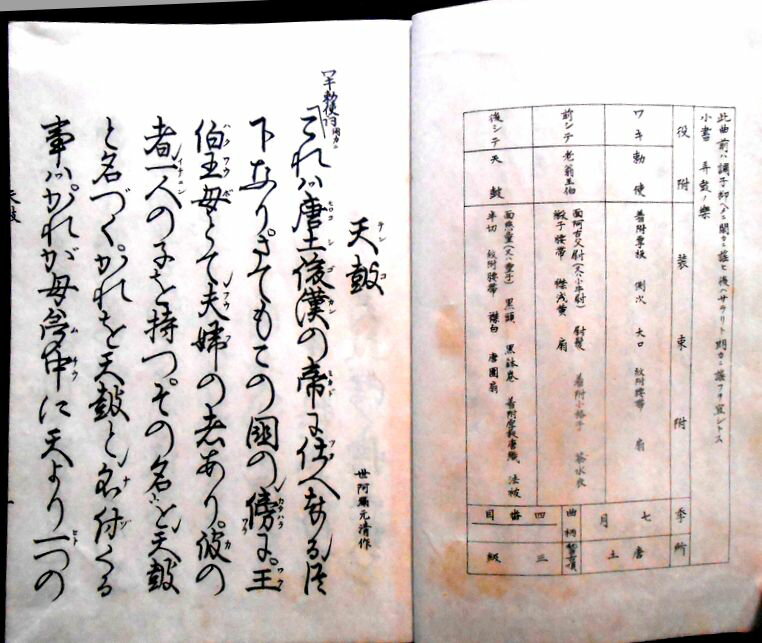 此曲前ハ調子抑ヘメニ閑カニ謡ヒ後ハサラリト朗カニ謡フヲ宜シトス
小書 弄鼓ノ樂
役附 裝束附 季 所
ワキ 勅使 着附厚板 側次 大口 紋附腰帶 扇
前シテ 老翁王伯 面阿古父尉(又ハ小牛尉) 尉髪 着附小格子 茶水衣
緞子腰帶 襟浅黄 扇
後シテ 天鼓 面慈童(又ハ童子) 黒頭 黒鉢巻 着附厚板唐織 法被
半切 紋附腰帶 襟白 唐團扇
七月 唐土
曲柄 四番目
三級
天鼓
テンコ
世阿彌元清作
ワキ勅使
これハ唐土後漢の帝に仕へ奉る臣
下なり。さてもこの國の傍に。王
伯王母とて夫婦の者あり。彼の
者一人の子を持つ。その名を天鼓
と名づく。かれを天鼓と名付くる
事ハ。かれが母夢中に天より一つの
天鼓